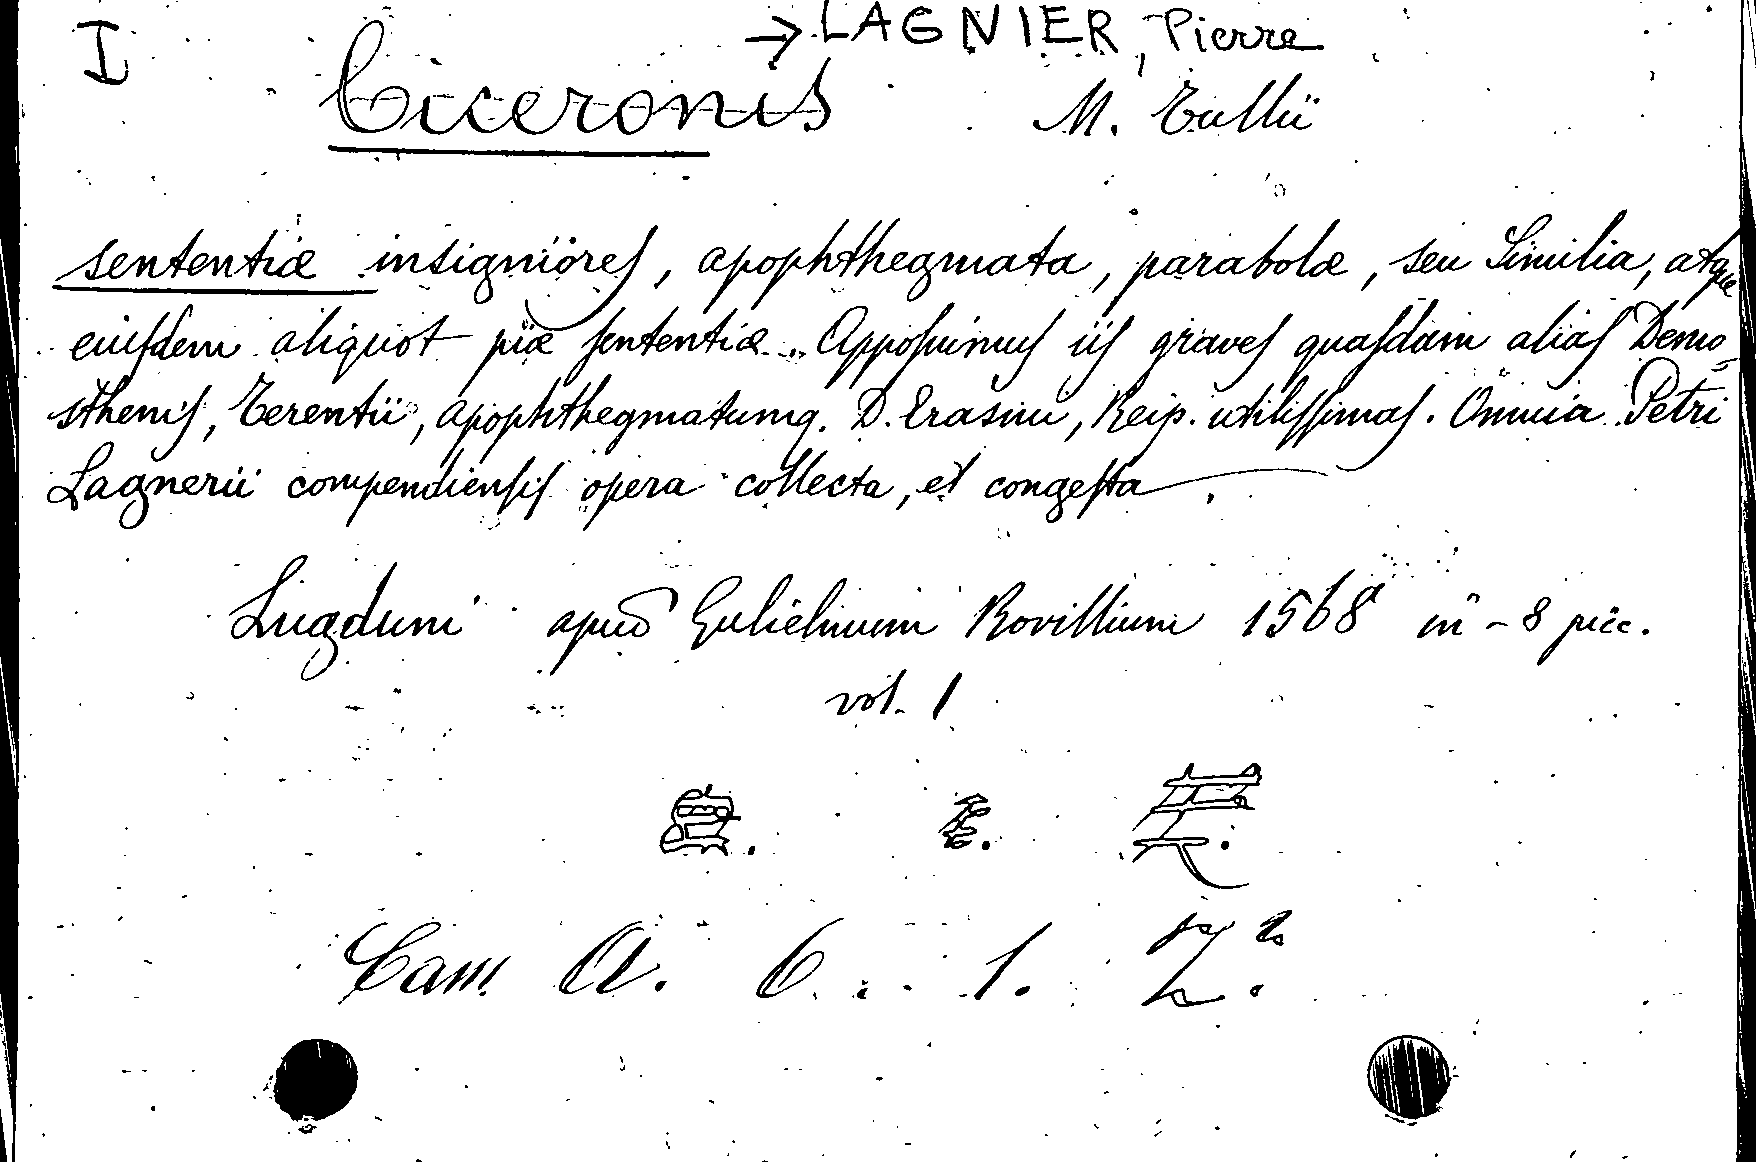 I → LAGNIER, Pierre
Ciceronis M. Tullii
sententiæ insigniores, apophthegmata, parabolæ, seu Similia, atque
eiusdem aliquot piæ sententiæ. Apposuimus iis graves quasdam alias Demo-
sthenis, Terentii, apophthegmatumq. D. Erasmi, Reip. utilissimas. Omnia Petri
Lagnerii compendiensis opera collecta, et congesta.
Lugduni apud Gulielmum Rovillium 1568 in-8 picc.
vol. 1
Cam A. 6. 1. Z.